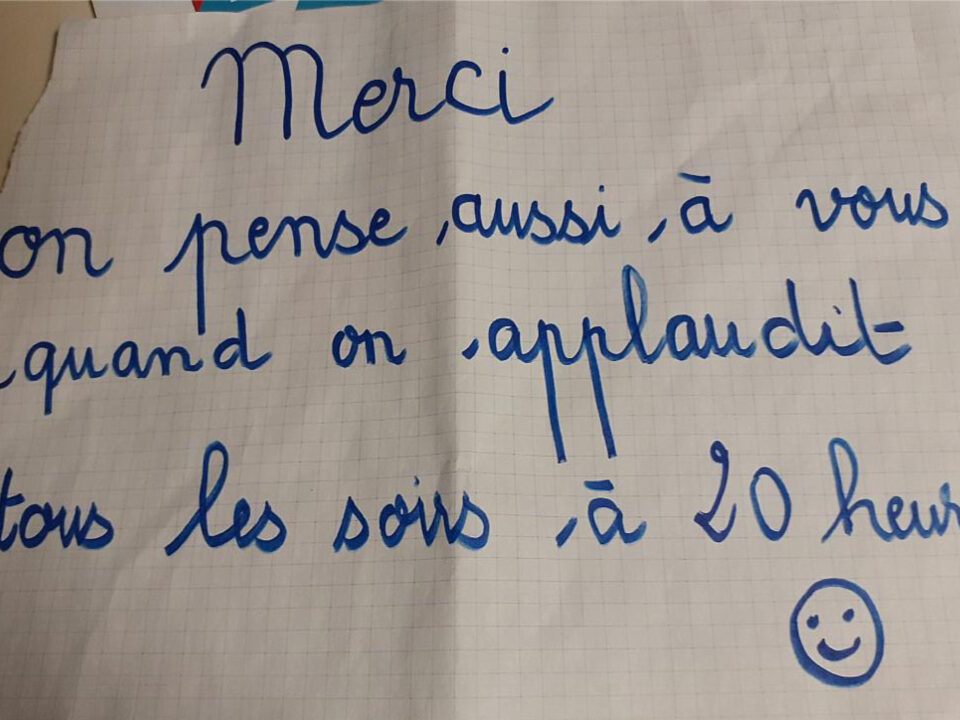 Merci
on pense aussi à vous
quand on applaudit
tous les soirs à 20 heur